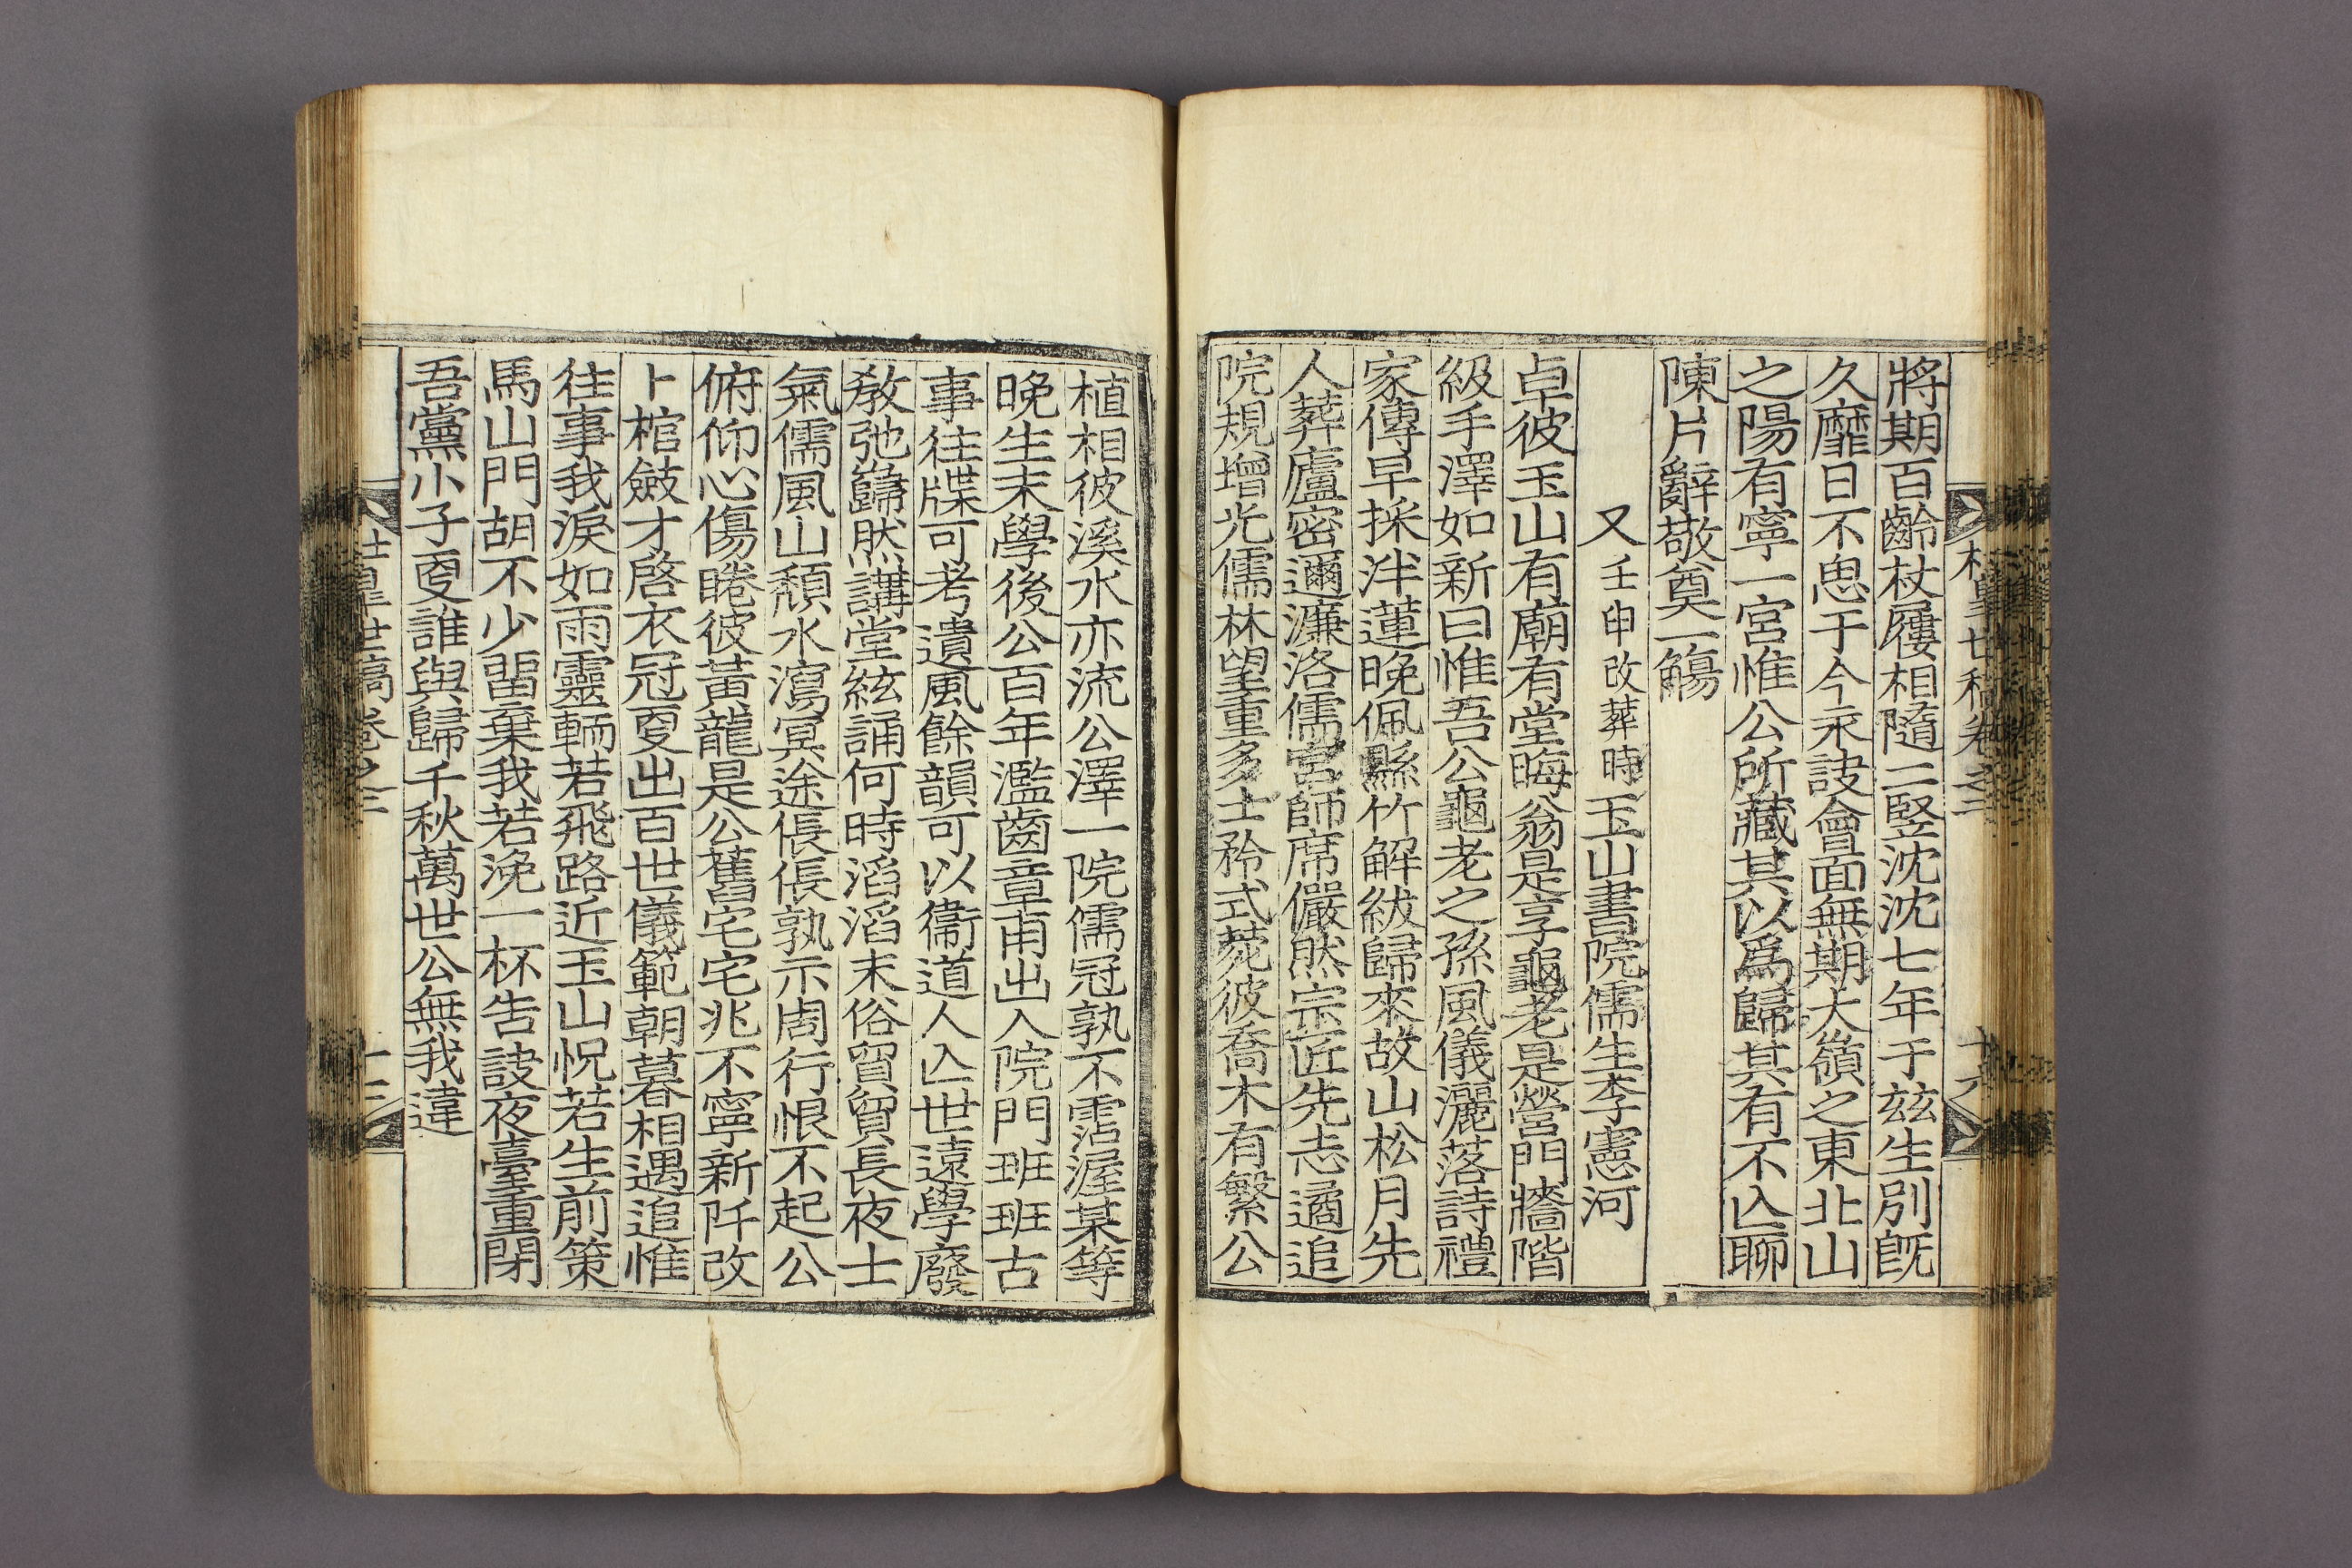 將期百齡杖屨相隨二竪沈沈七年于玆生別旣
久靡日不思于今永訣會面無期大嶺之東北山
之陽有寧一宮惟公所藏其以爲歸其有不亾聊
陳片辭敬奠一觴
又壬申改葬時玉山書院儒生李憲河
卓彼玉山有廟有堂晦翁是享龜老是營門牆階
級手澤如新曰惟吾公龜老之孫風儀灑落詩禮
家傳早採泮蓮晩佩縣竹解紱歸來故山松月先
人葬廬密邇濂洛儒宮師席儼然宗匠先志遹追
院規增光儒林望重多士矜式菀彼喬木有繁公
植相彼溪水亦流公澤一院儒冠孰不霑渥某等
晩生末學後公百年濫齒章甫出入院門班班古
事往牒可考遺風餘韻可以衞道人亾世遠學廢
敎弛巋然講堂絃誦何時滔滔末俗貿貿長夜士
氣儒風山頹水瀉冥途倀倀孰示周行恨不起公
俯仰心傷睠彼黃龍是公舊宅宅兆不寧新阡改
卜棺斂才啓衣冠夏出百世儀範朝暮相遇追惟
往事我淚如雨靈輀若飛路近玉山怳若生前策
馬山門胡不少留棄我若浼一杯告訣夜臺重閉
吾黨小子夏誰與歸千秋萬世公無我違
世稿卷之三